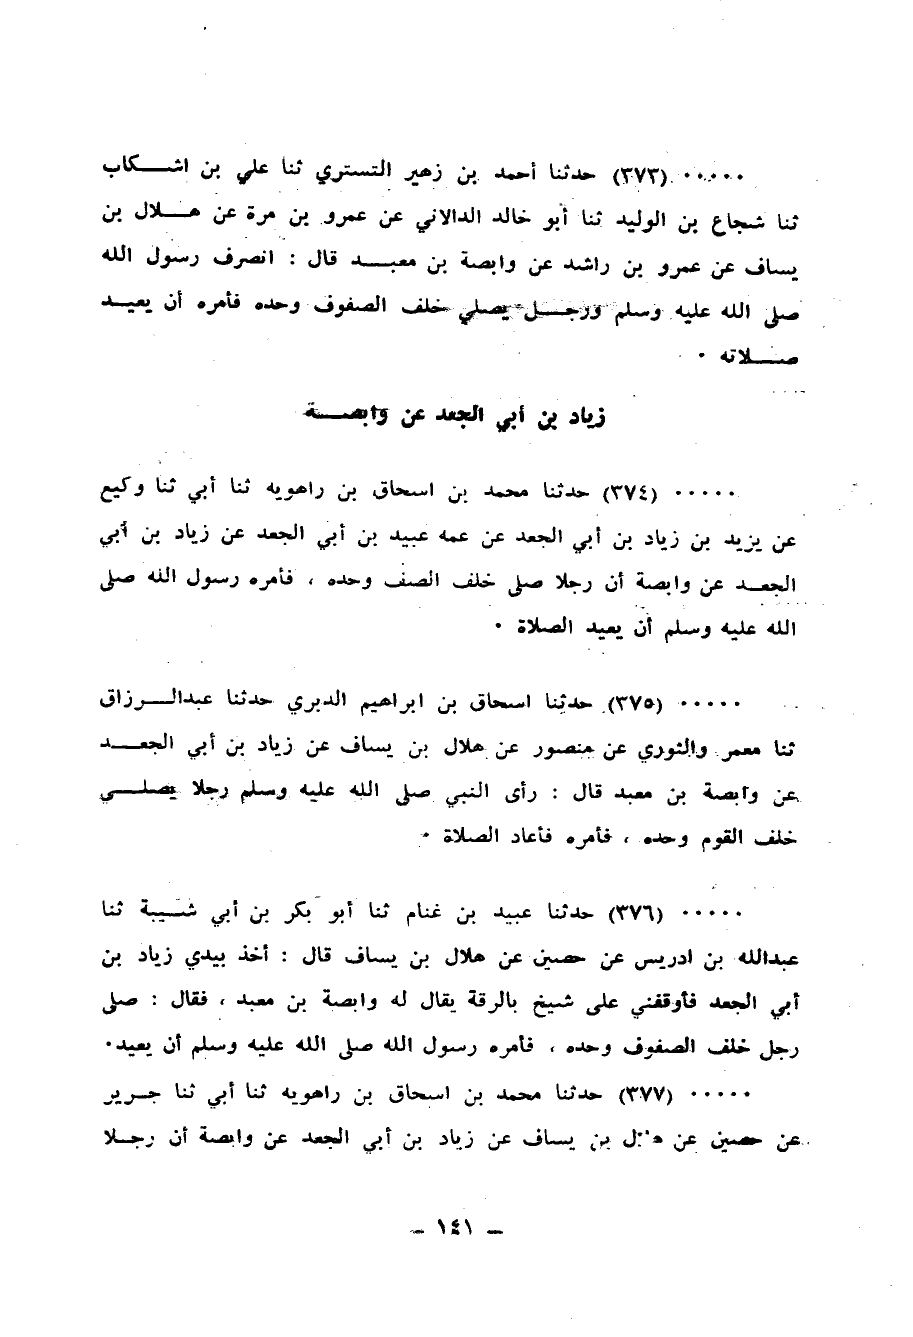 ٠٠٠٠٠ (٣٧٣) حدثنا أحمد بن زهير التستري ثنا علي بن اشكاب
ثنا شجاع بن الوليد ثنا أبو خالد الدالاني عن عمرو بن مرة عن هلال بن
يساف عن عمرو بن راشد عن وابصة بن معبد قال : انصرف رسول الله
صلى الله عليه وسلم ورجل يصلي خلف الصفوف وحده فأمره أن يعيد
صلاته ٠
زياد بن أبي الجعد عن وابصة
٠٠٠٠٠ (٣٧٤) حدثنا محمد بن اسحاق بن راهويه ثنا أبي ثنا وكيع
عن يزيد بن زياد بن أبي الجعد عن عمه عبيد بن أبي الجعد عن زياد بن أبي
الجعد عن وابصة أن رجلا صلى خلف الصف وحده ، فأمره رسول الله صلى
الله عليه وسلم أن يعيد الصلاة ٠
٠٠٠٠٠ (٣٧٥) حدثنا اسحاق بن ابراهيم الدبري حدثنا عبدالرزاق
ثنا معمر والثوري عن منصور عن هلال بن يساف عن زياد بن أبي الجعد
عن وابصة بن معبد قال : رأى النبي صلى الله عليه وسلم رجلا يصلي
خلف القوم وحده ، فأمره فأعاد الصلاة ٠
٠٠٠٠٠ (٣٧٦) حدثنا عبيد بن غنام ثنا أبو بكر بن أبي شيبة ثنا
عبدالله بن ادريس عن حصين عن هلال بن يساف قال : أخذ بيدي زياد بن
أبي الجعد فأوقفني على شيخ بالرقة يقال له وابصة بن معبد ، فقال : صلى
رجل خلف الصفوف وحده ، فأمره رسول الله صلى الله عليه وسلم أن يعيد٠
٠٠٠٠٠ (٣٧٧) حدثنا محمد بن اسحاق بن راهويه ثنا أبي ثنا جرير
عن حصين عن هلال بن يساف عن زياد بن أبي الجعد عن وابصة أن رجلا
– ١٤١ –